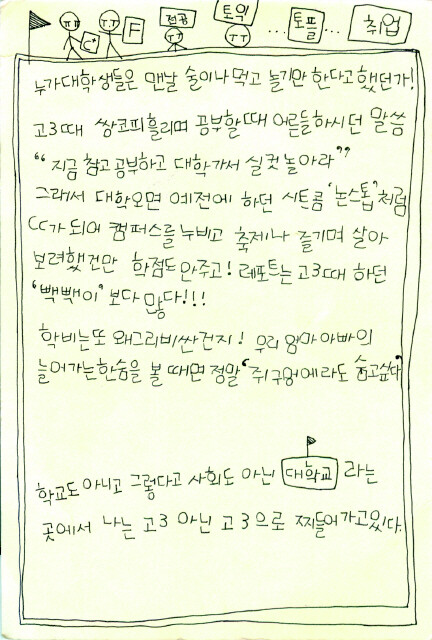 ㅠㅠ ㅠㅠ 전공 토익 ... 토플 ... 취업
C+ F ㅠㅠ ㅠㅠ
누가 대학생들은 맨날 술이나 먹고 놀기만 한다고 했던가!
고3때 쌍코피 흘리며 공부할때 어른들 하시던 말씀
"지금 참고 공부하고 대학가서 실컷 놀아라"
그래서 대학오면 예전에 하던 시트콤 '논스톱' 처럼
CC가 되어 캠퍼스를 누비고 축제나 즐기며 살아
보려했건만 학점도 안주고! 레포트는 고3때 하던
'빽빽이' 보다 많다!!!
학비는 또 왜그리 비싼건지! 우리 엄마 아빠의
늘어가는 한숨을 볼 때면 정말 '쥐구멍에라도 숨고싶다'
학교도 아니고 그렇다고 사회도 아닌 대학교 라는
곳에서 나는 고3 아닌 고3으로 찌들어가고있다.